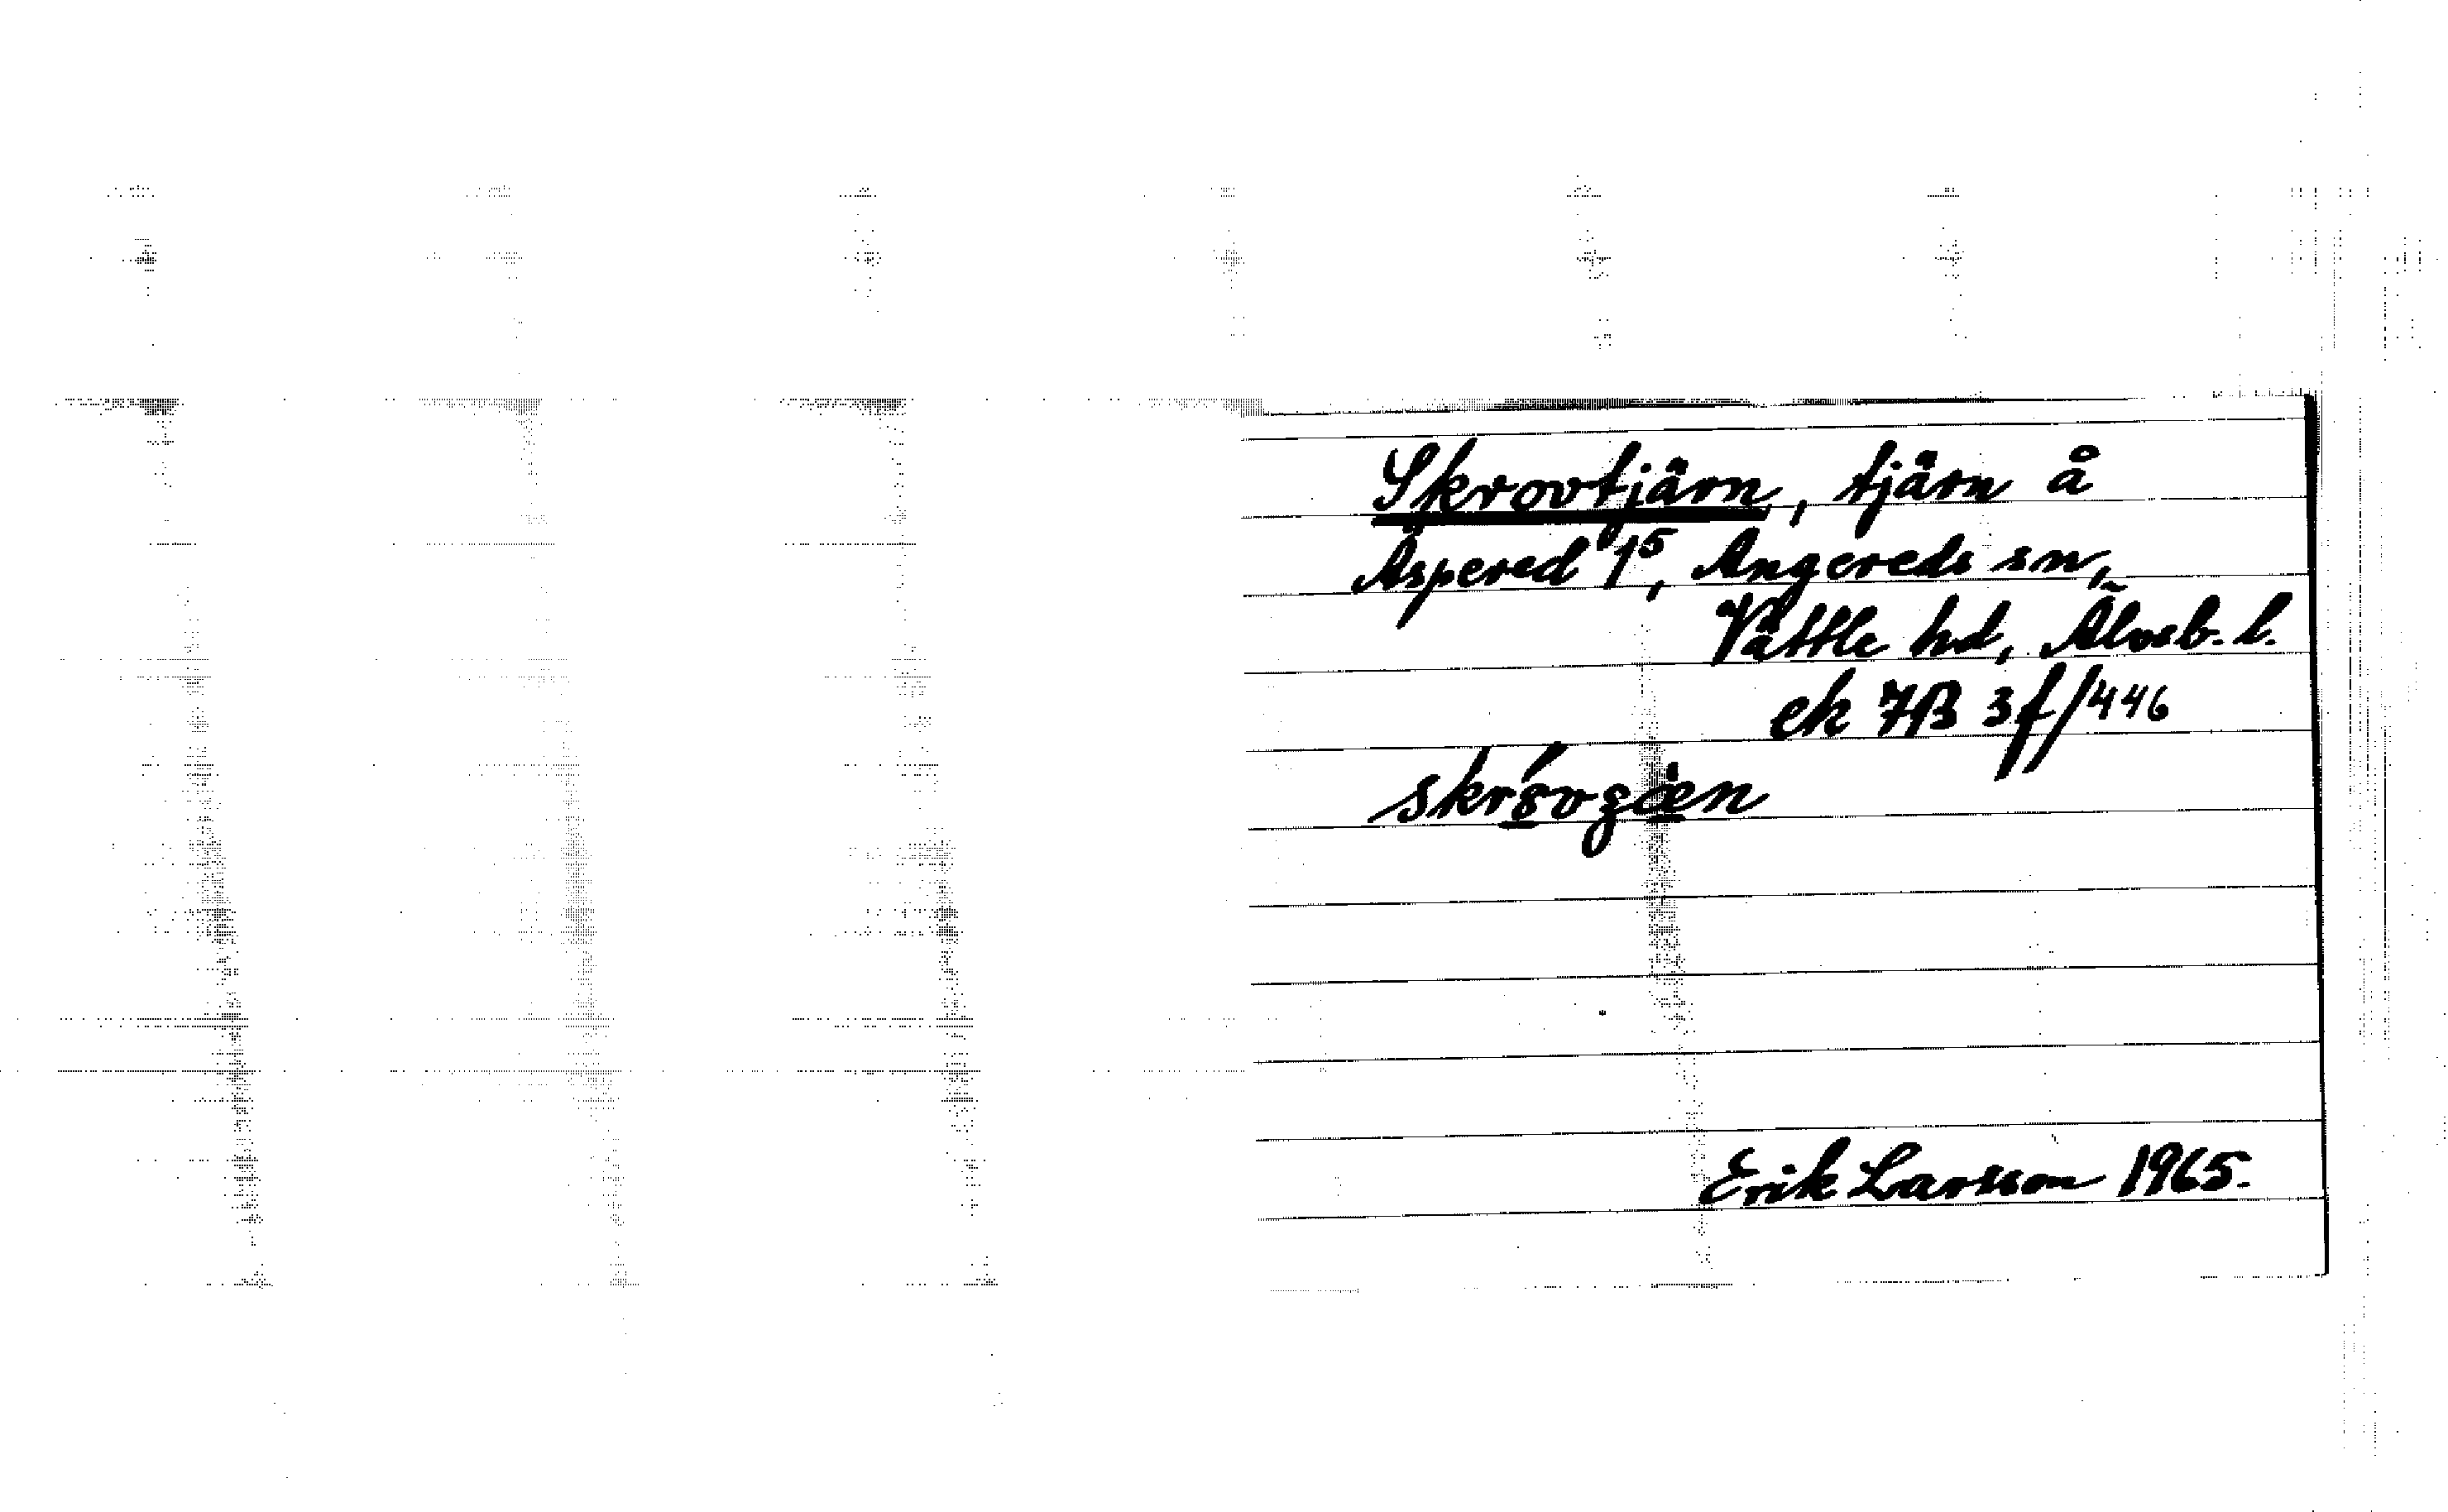 Skrovtjärn, tjärn å
Äspered 1⁵, Angereds sn,
Vättle hd, Älvsb. l.
ek 7B 3f/446
Erik Larsson 1965.